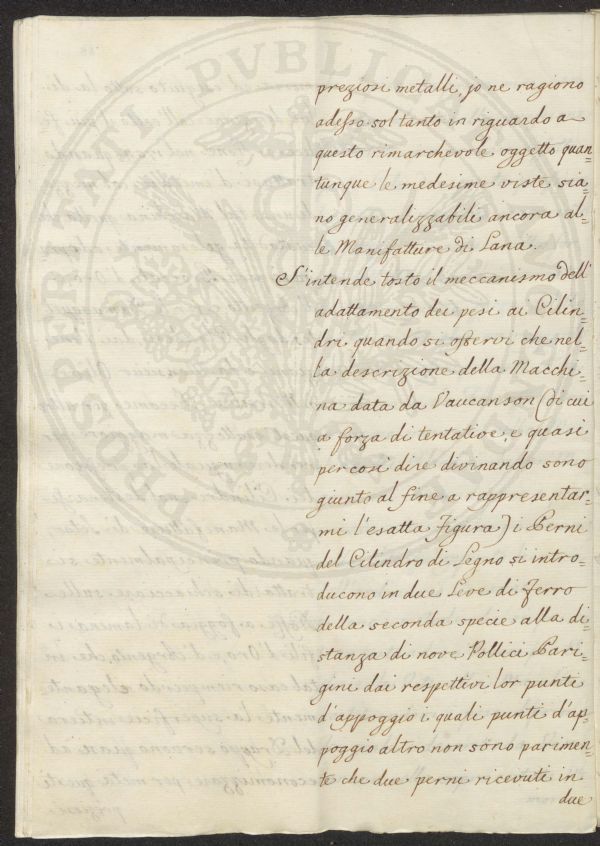 preziosi metalli, jo ne ragiono
adesso soltanto in riguardo a
questo rimarchevole oggetto quan=
tunque le medesime viste sia=
no generalizzabili ancora al=
le Manifatture di Lana.
S'intende tosto il meccanismo dell'
adattamento dei pesi ai Cilin=
dri quando si osservi che nel=
la descrizione della Macchi=
na data da Vaucanson (di cui
a forza di tentative, e quasi
per così dire divinando sono
giunto al fine a rappresentar=
mi l'esatta Figura) i Perni
del Cilindro di Legno si intro=
ducono in due Leve di Ferro
della seconda specie alla di=
stanza di nove Pollici Pari=
gini dai respettivi lor punti
d'appoggio i quali punti d'ap=
poggio altro non sono parimen=
te che due perni ricevuti in
due
PROSPERITATI PUBLICAE